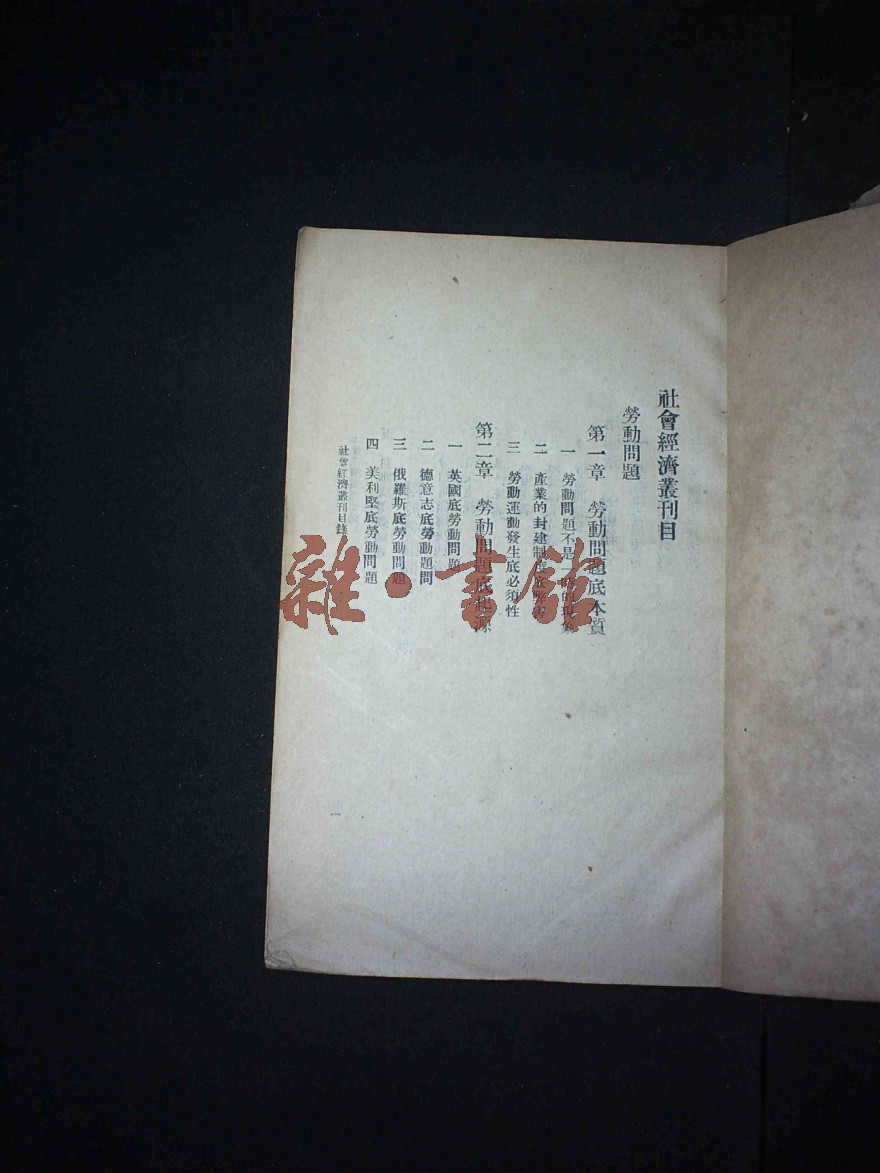 社會經濟叢刊目
勞動問題
第一章 勞動問題底本質
一 勞動問題不是一時的現象
二 產業的封建制度底
三 勞動運動發生底必須性
第二章 勞動問題底起源
一 英國底勞動問題
二 德意志底勞動題問
三 俄羅斯底勞動問題
四 美利堅底勞動問題
社會經濟叢刊目錄
一
雜·書館